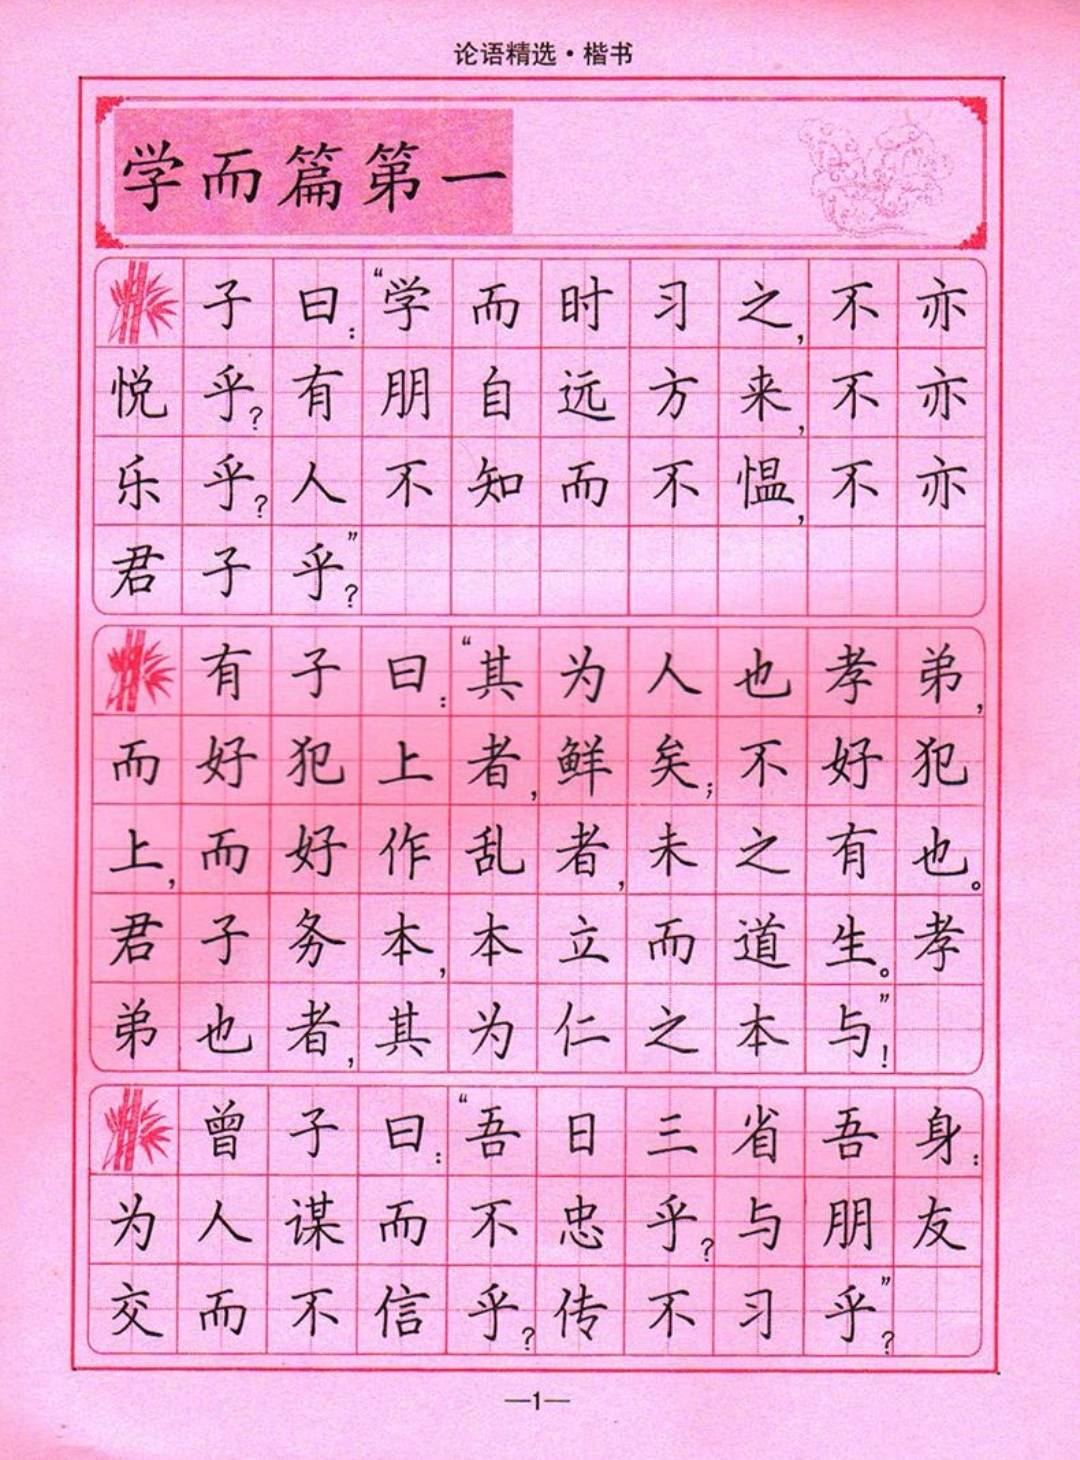 论语精选·楷书
学而篇第一
子曰：“学而时习之，不亦
悦乎？有朋自远方来，不亦
乐乎？人不知而不愠，不亦
君子乎？”
有子曰：“其为人也孝弟，
而好犯上者，鲜矣；不好犯
上，而好作乱者，未之有也。
君子务本，本立而道生。孝
弟也者，其为仁之本与！”
曾子曰：“吾日三省吾身：
为人谋而不忠乎？与朋友
交而不信乎？传不习乎？”
—1—